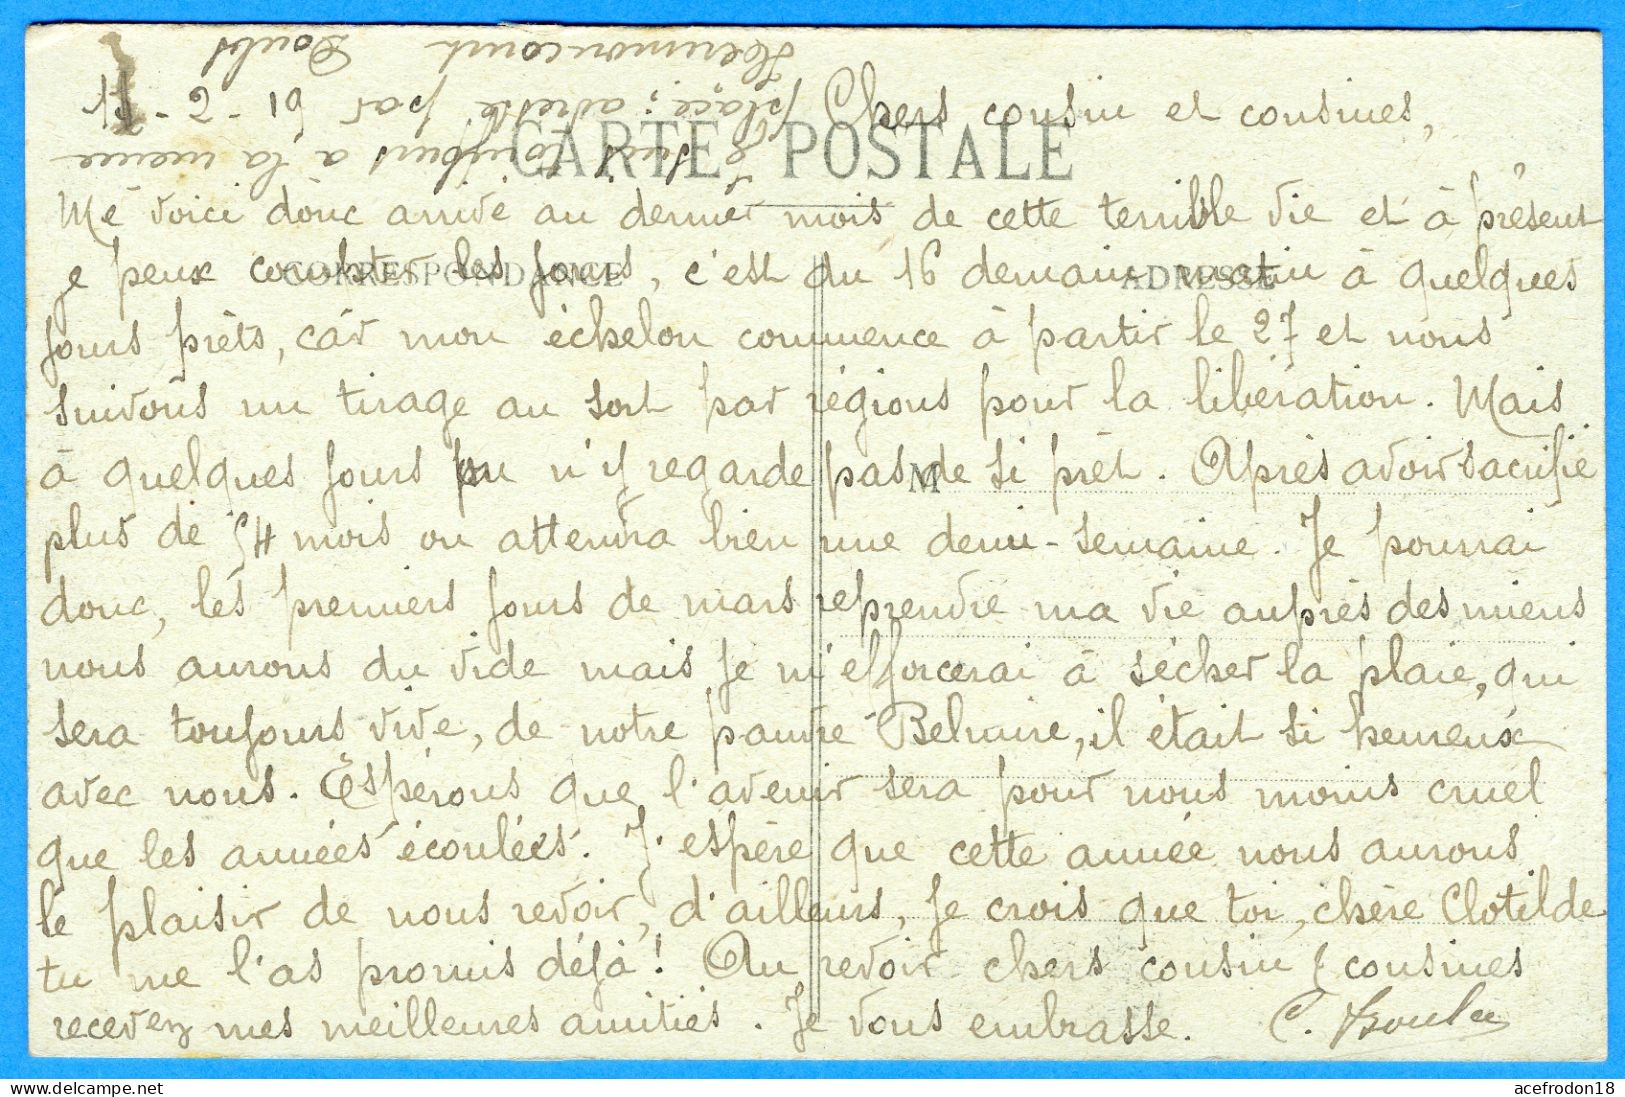 15-2-19
Chers cousin et cousines,
CARTE POSTALE
Me voici donc arrivé au dernier mois de cette terrible vie et à présent
CORRESPONDANCE
ADRESSE
je peux compter les jours, c'est du 16 demain matin à quelques
jours prêts, car mon échelon commence à partir le 27 et nous
suivons un tirage au sort par régions pour la libération. Mais
à quelques jours on n'y regarde pas de si prêt. Après avoir sacrifié
M
plus de 54 mois on attendra bien une demi-semaine. Je pourrai
donc, les premiers jours de mars reprendre ma vie auprès des miens
nous aurons du vide mais je m'efforcerai à sécher la plaie, qui
sera toujours vive, de notre pauvre il était si heureux
avec nous. Espérons que l'avenir sera pour nous moins cruel
que les années écoulées. J'espère que cette année nous aurons
le plaisir de nous revoir, d'ailleurs, je crois que toi, chère Clotilde
tu me l'as promis déjà! Au revoir chers cousin & cousines
recevez mes meilleures amitiés. Je vous embrasse. C.
Je suis toujours à la même
place; adresse par
Hérimoncourt Doubs
acefrodon18